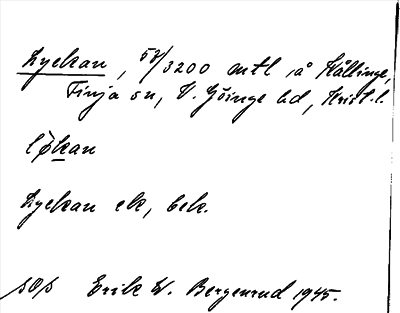 Lyckan, 57/3200 mtl å Hållinge,
Finja sn, V. Göinge hd, Krist. l.
løkan
Lyckan ek, bek.
sop Erik W. Bergenrud 1945.